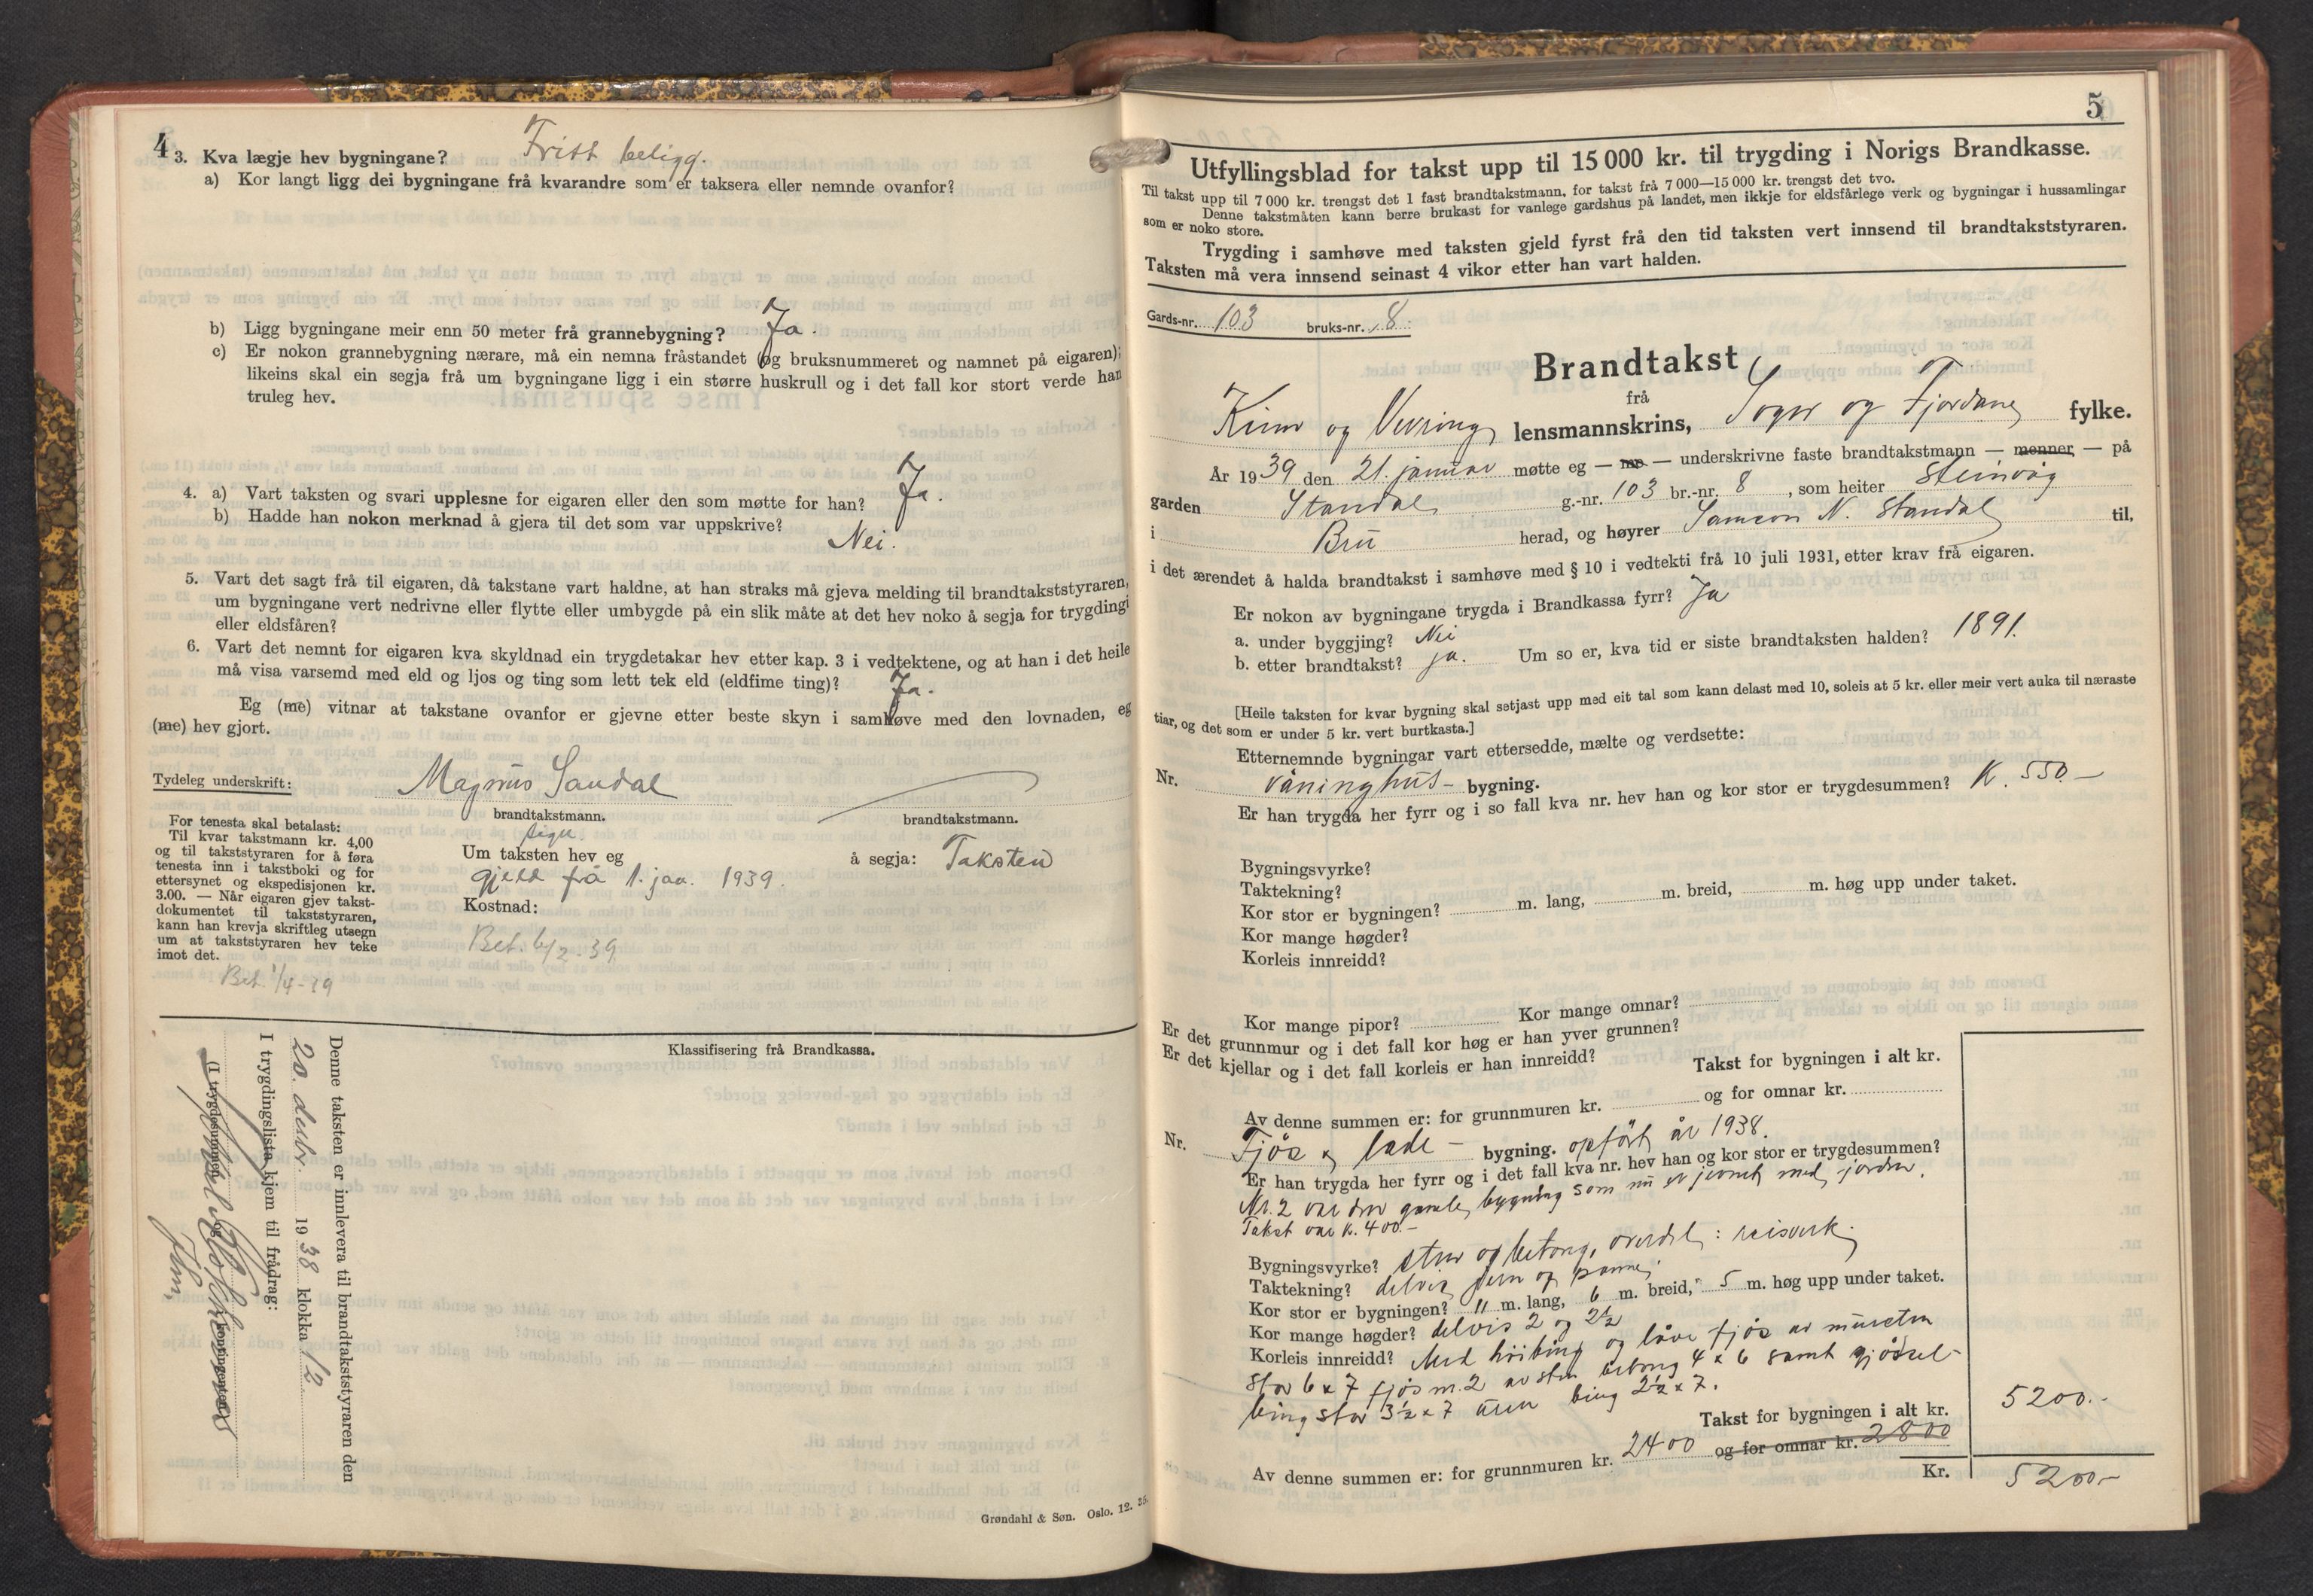 4
3. Kva lægje hev bygningane? Fritt beligg.
a) Kor langt ligg dei bygningane frå kvarandre som er taksera eller nemnde ovanfor?
b) Ligg bygningane meir enn 50 meter frå grannebygning? Ja.
c) Er nokon grannebygning nærare, må ein nemna fråstandet (og bruksnummeret og namnet på eigaren);
likeins skal ein segja frå um bygningane ligg i ein større huskrull og i det fall kor stort verde han
truleg hev.
4. a) Vart taksten og svari upplesne for eigaren eller den som møtte for han? Ja.
b) Hadde han nokon merknad å gjera til det som var uppskrive? Nei.
5. Vart det sagt frå til eigaren, då takstane vart haldne, at han straks må gjeva melding til brandtakststyraren,
um bygningane vert nedrivne eller flytte eller umbygde på ein slik måte at det hev noko å segja for trygdingi
eller eldsfåren?
6. Vart det nemnt for eigaren kva skyldnad ein trygdetakar hev etter kap. 3 i vedtektene, og at han i det heile
må visa varsemd med eld og ljos og ting som lett tek eld (eldfime ting)? Ja.
Eg (me) vitnar at takstane ovanfor er gjevne etter beste skyn i samhøve med den lovnaden, eg
(me) hev gjort.
Tydeleg underskrift: Magnus Sandal
brandtakstmann. brandtakstmann.
sign.
For tenesta skal betalast:
Til kvar takstmann kr. 4,00
og til takststyraren for å føra
tenesta inn i takstboki og for
ettersynet og ekspedisjonen kr.
3.00. — Når eigaren gjev takst-
dokumentet til takststyraren,
kann han krevja skriftleg utsegn
um at takststyraren hev teke
imot det.
Bet. 1/4-39
Um taksten hev eg å segja: Taksten
gjeld frå 1. jan. 1939.
Kostnad:
Bet. 6/2-39
Klassifisering frå Brandkassa.
Denne taksten er innlevera til brandtakststyraren den
20. desbr. 1938 klokka 12
I trygdingslista kjem til frådrag:
(I trygdesummen og kontingenten)
Grøndahl & Søn. Oslo. 12. 35.
5
Utfyllingsblad for takst upp til 15 000 kr. til trygding i Norigs Brandkasse.
Til takst upp til 7 000 kr. trengst det 1 fast brandtakstmann, for takst frå 7 000—15 000 kr. trengst det tvo.
Denne takstmåten kann berre brukast for vanlege gardshus på landet, men ikkje for eldsfårlege verk og bygningar i hussamlingar
som er noko store.
Trygding i samhøve med taksten gjeld fyrst frå den tid taksten vert innsend til brandtakststyraren.
Taksten må vera innsend seinast 4 vikor etter han vart halden.
Gards-nr. 103 bruks-nr. 8.
Brandtakst
frå
Kinn og Vevring lensmannskrins, Sogn og Fjordane fylke.
År 1939 den 21. januar møtte eg — me — underskrivne faste brandtakstmann — menner — på
garden Standal g.-nr. 103 br.-nr. 8, som heiter Steinvåg
i Bru herad, og høyrer Samson N. Standal til,
i det ærendet å halda brandtakst i samhøve med § 10 i vedtekti frå 10 juli 1931, etter krav frå eigaren.
Er nokon av bygningane trygda i Brandkassa fyrr? Ja
a. under byggjing? Nei
b. etter brandtakst? ja. Um so er, kva tid er siste brandtaksten halden? 1891.
[Heile taksten for kvar bygning skal setjast upp med eit tal som kann delast med 10, soleis at 5 kr. eller meir vert auka til næraste
tiar, og det som er under 5 kr. vert burtkasta.]
Etternemnde bygningar vart ettersedde, mælte og verdsette:
Nr. Våninghus- bygning.
Er han trygda her fyrr og i so fall kva nr. hev han og kor stor er trygdesummen? K. 550.-
Bygningsvyrke?
Taktekning?
Kor stor er bygningen? m. lang, m. breid, m. høg upp under taket.
Kor mange høgder?
Korleis innreidd?
Kor mange pipor? Kor mange omnar?
Er det grunnmur og i det fall kor høg er han yver grunnen?
Er det kjellar og i det fall korleis er han innreidd?
Takst for bygningen i alt kr.
Av denne summen er: for grunnmuren kr. og for omnar kr.
Nr. Fjös & lade - bygning. opført år 1938.
Er han trygda her fyrr og i det fall kva nr. hev han og kor stor er trygdesummen?
Nr. 2 var den gamle bygning som nu er jevnet med jorden.
Takst var K. 400.-
Bygningsvyrke? sten og betong, overdel: reisverk.
Taktekning? delvis jern og panne.
Kor stor er bygningen? 11 m. lang, 6 m. breid, 5 m. høg upp under taket.
Kor mange høgder? delvis 2 og 2½
Korleis innreidd? Med höibing og låve fjös av mursten
stor 6 x 7 fjös nr. 2 av sten betong 4 x 6 samt gjödsel-
bing stor 3½ x 7 bing 2½ x 7.
Takst for bygningen i alt kr. 5200.-
Av denne summen er: for grunnmuren kr. 2400 og for omnar kr. 2800
Kr. 5200-